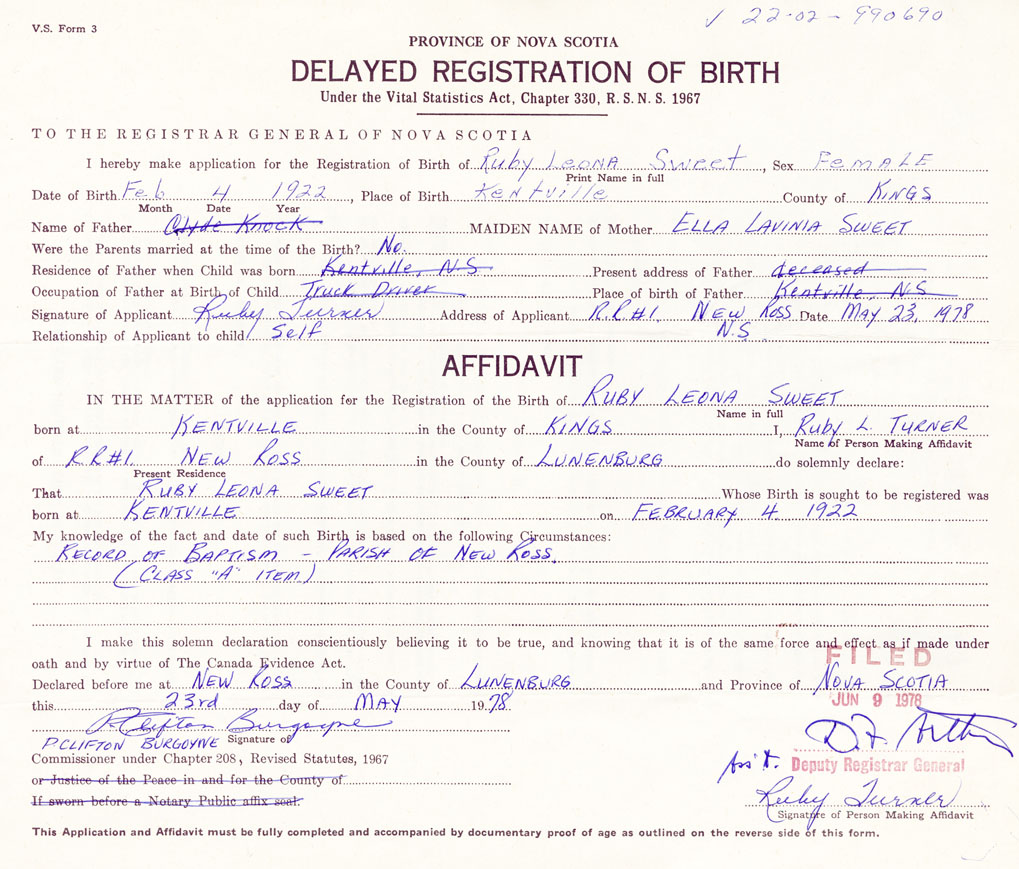 V.S. Form 3
✓ 22-02-990690
PROVINCE OF NOVA SCOTIA
DELAYED REGISTRATION OF BIRTH
Under the Vital Statistics Act, Chapter 330, R. S. N. S. 1967
TO THE REGISTRAR GENERAL OF NOVA SCOTIA
I hereby make application for the Registration of Birth of Ruby Leona Sweet, Sex Female
Print Name in full
Date of Birth Feb 4 1922, Place of Birth Kentville County of Kings
Month Date Year
Name of Father Clyde Knock MAIDEN NAME of Mother ELLA LAVINIA SWEET
Were the Parents married at the time of the Birth? No.
Residence of Father when Child was born Kentville, N.S Present address of Father deceased
Occupation of Father at Birth of Child Truck Driver Place of birth of Father Kentville, N.S
Signature of Applicant Ruby Turner Address of Applicant R.R #1. NEW ROSS Date MAY 23, 1978
Relationship of Applicant to child Self N.S
AFFIDAVIT
IN THE MATTER of the application for the Registration of the Birth of RUBY LEONA SWEET
Name in full
born at KENTVILLE in the County of KINGS I, RUBY L. TURNER
Name of Person Making Affidavit
of R.R#1. NEW ROSS in the County of LUNENBURG do solemnly declare:
Present Residence
That RUBY LEONA SWEET Whose Birth is sought to be registered was
born at KENTVILLE on FEBRUARY 4 1922
My knowledge of the fact and date of such Birth is based on the following Circumstances:
RECORD OF BAPTISM - PARISH OF NEW ROSS.
(CLASS "A" ITEM)
I make this solemn declaration conscientiously believing it to be true, and knowing that it is of the same force and effect as if made under
oath and by virtue of The Canada Evidence Act.
FILED
Declared before me at NEW ROSS in the County of LUNENBURG and Province of NOVA SCOTIA
this 23rd day of MAY 1978.
JUN 9 1978
P. Clifton Burgoyne
P. CLIFTON BURGOYNE Signature of
D.F. Arthur
Commissioner under Chapter 208, Revised Statutes, 1967
Ass't. Deputy Registrar General
or Justice of the Peace in and for the County of
Ruby Turner
If sworn before a Notary Public affix seal.
Signature of Person Making Affidavit
This Application and Affidavit must be fully completed and accompanied by documentary proof of age as outlined on the reverse side of this form.